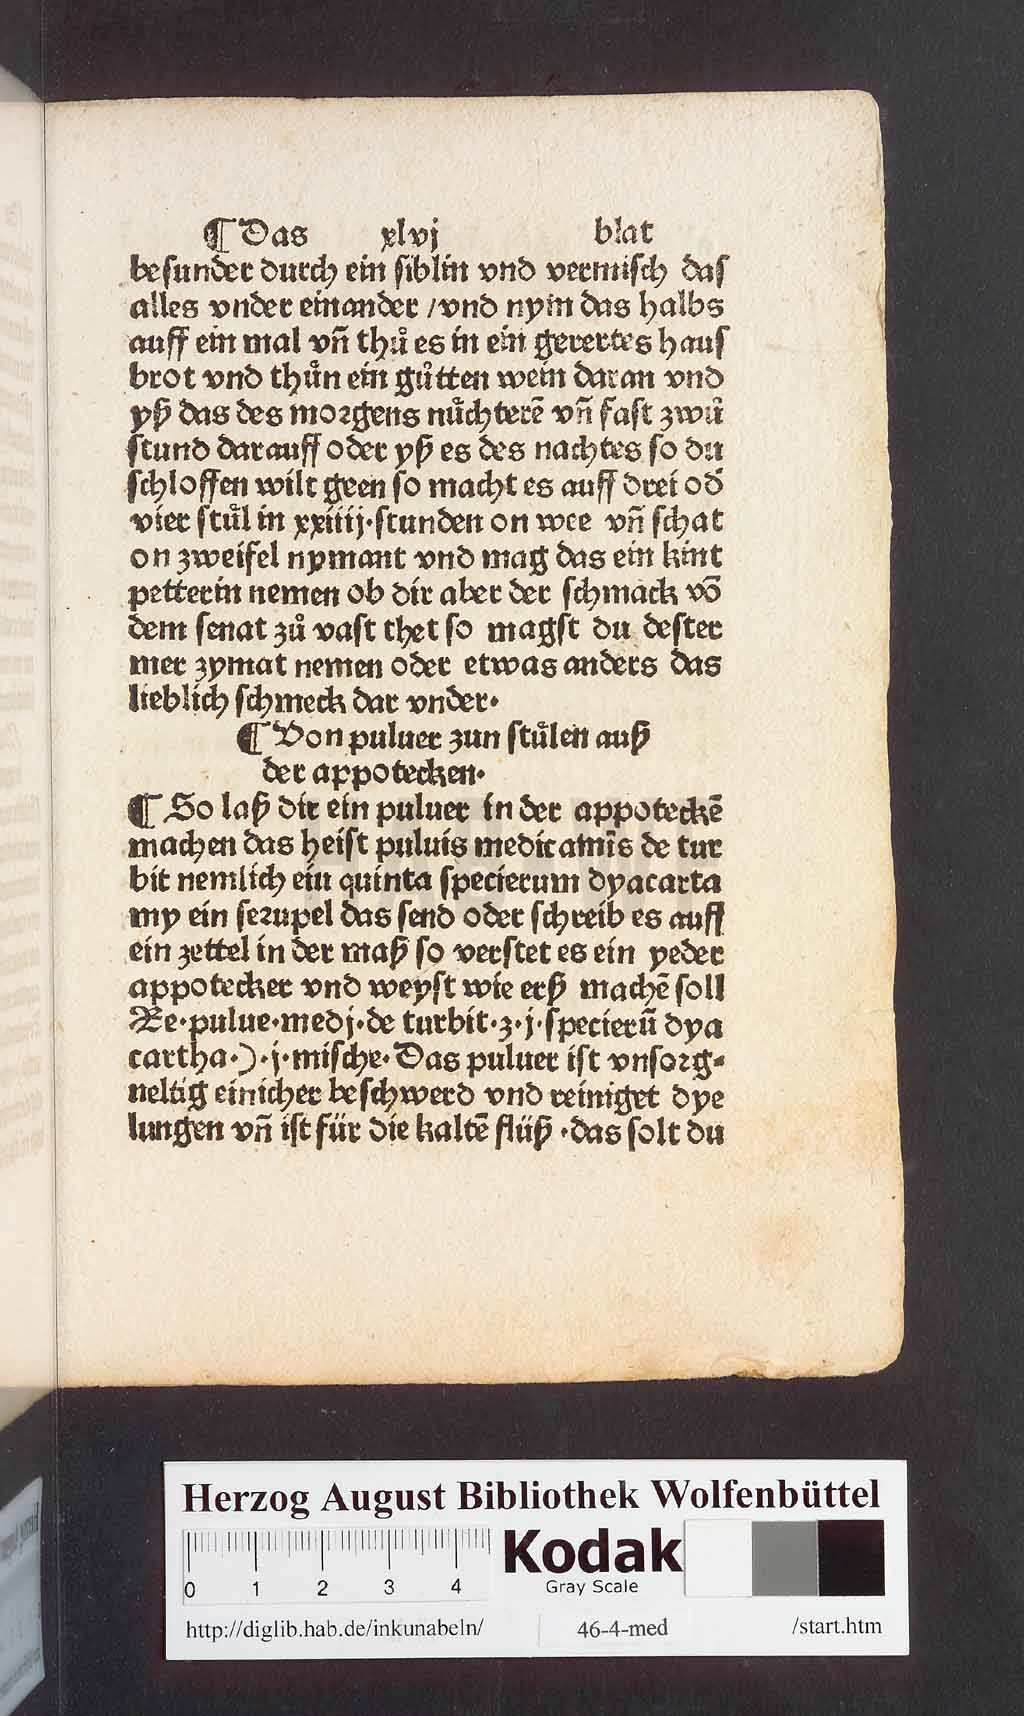 ¶ Das xlvj blat
besunder durch ein siblin vnd vermisch das
alles vnder einander / vnd nym das halbs
auff ein mal vn̄ thů es in ein gerertes haus
brot vnd thůn ein gůtten wein daran vnd
yß das des morgens nůchterē vn̄ fast zwů
stund darauff oder yß es des nachtes so du
schloffen wilt geen so macht es auff drei od̕
vier stůl in xxiiij·stunden on wee vn̄ schat
on zweifel nymant vnd mag das ein kint
petterin nemen ob dir aber der schmack vō
dem senat zů vast thet so magst du dester
mer zymat nemen oder etwas anders das
lieblich schmeck dar vnder·
¶ Von puluer zun stůlen auß
der appotecken·
¶ So laß dir ein puluer in der appoteckē
machen das heist puluis medicamīs de tur
bit nemlich ein quinta specierum dyacarta
my ein scrupel das send oder schreib es auff
ein zettel in der maß so verstet es ein yeder
appotecker vnd weyst wie erß machē soll
Re·pulue·medj·de turbit·ʒ·j·specierū dya
cartha·)·j·mische·Das puluer ist vnsorg⸗
neltig einicher beschwerd vnd reiniget dye
lungen vn̄ ist für die kaltē flüß ·das solt du
Herzog August Bibliothek Wolfenbüttel
0 1 2 3 4
Kodak
Gray Scale
http://diglib.hab.de/inkunabeln/ 46-4-med /start.htm